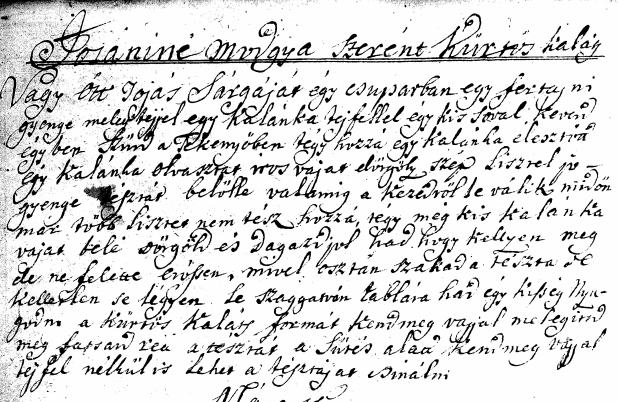 Posániné mogya szerént Kürtös kalátz
Végy Ött Tojás Sárgáját égy csuparban egy fertajni
gyenge meleg tejjel egy Kalánka tejfellel egy kis soval Keverd
égyben Szürd a Tekenyöben tégy hozzá egy kalánka élesztöt
égy Kalánka olvasztat iros vajat dörgölj szép Liszttel jo
gyenge tésztát belölle valamig a kezedröl le válik midön
már több Lisztet nem tész hozzá, tégy még kis kalánka
vajat belé dörgöld és Dagazd jol had hogy kellyen meg
de ne felette erössen, mivel osztán szakad a Tészta de
keletlen se légyen. Le szaggatván táblára had égy kisség Nyu-
godni a Kürtös Kaláts formát kend meg vajjal melegitsd
meg facsard reá a tésztát a Sütés alatt kend meg vajjal
tejfel nélkül is Lehet a tésztáját csinálni